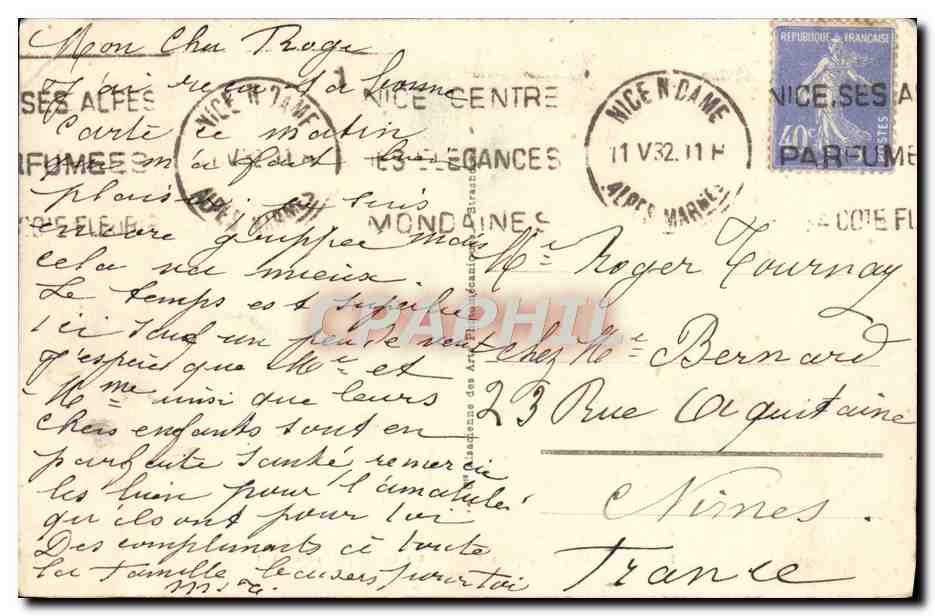 Mon Cher Roger
J'ai reçu ta bonne
Carte ce matin
elle m'a fait bien
plaisir je suis
encore grippée mais
cela va mieux
Le temps est superbe
ici sauf un peu de vent
J'espère que Mr et
Mme ainsi que leurs
chers enfants sont en
parfaite santé remercie
les bien pour l'amabilité
qu'ils ont pour toi
Des compliments à toute
la famille baisers pour toi
NICE N DAME
ALPES MARMES
SES ALPES
PARFUMEES
COTE FLEURIE
1
NICE CENTRE
LES ELEGANCES
MONDAINES
NICE N DAME
11 V 32. 11 H
ALPES MARMES
NICE, SES A
PARFUME
LA COTE FL
REPUBLIQUE FRANÇAISE
40c
POSTES
Mr Roger Tournay
chez Mr Bernard
23 Rue Aquitaine
Nimes
France
CPAPHIL
Alsacienne des Arts Photomécaniques, Strasbo